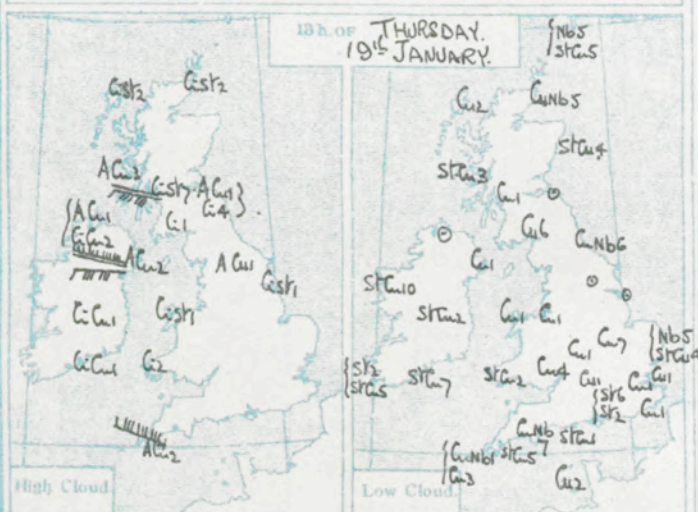 13h. OF THURSDAY.
19th JANUARY.
CiSt2
CiSt2
ACu3
CiSt7. ACu1
Ci4
Ci1
ACu1
CiCu2
ACu2
ACu1
CiSt1
CiCu1
CiSt1
CiCu1
Ci2
ACu2
High Cloud.
Nb5
StCu5
Cu2
CuNb5
StCu4
StCu3
Cu1
Cu6
CuNb6
Cu1
StCu10
StCu2
Cu1
Cu1
Cu7
Cu1
Nb5
StCu4
St2
StCu5
StCu7
StCu2
Cu4
Cu1
Cu1
Cu1
St6
St2
Cu1
CuNb
7
StCu1
CuNb1
StCu5
Cu3
Cu2
Low Cloud.